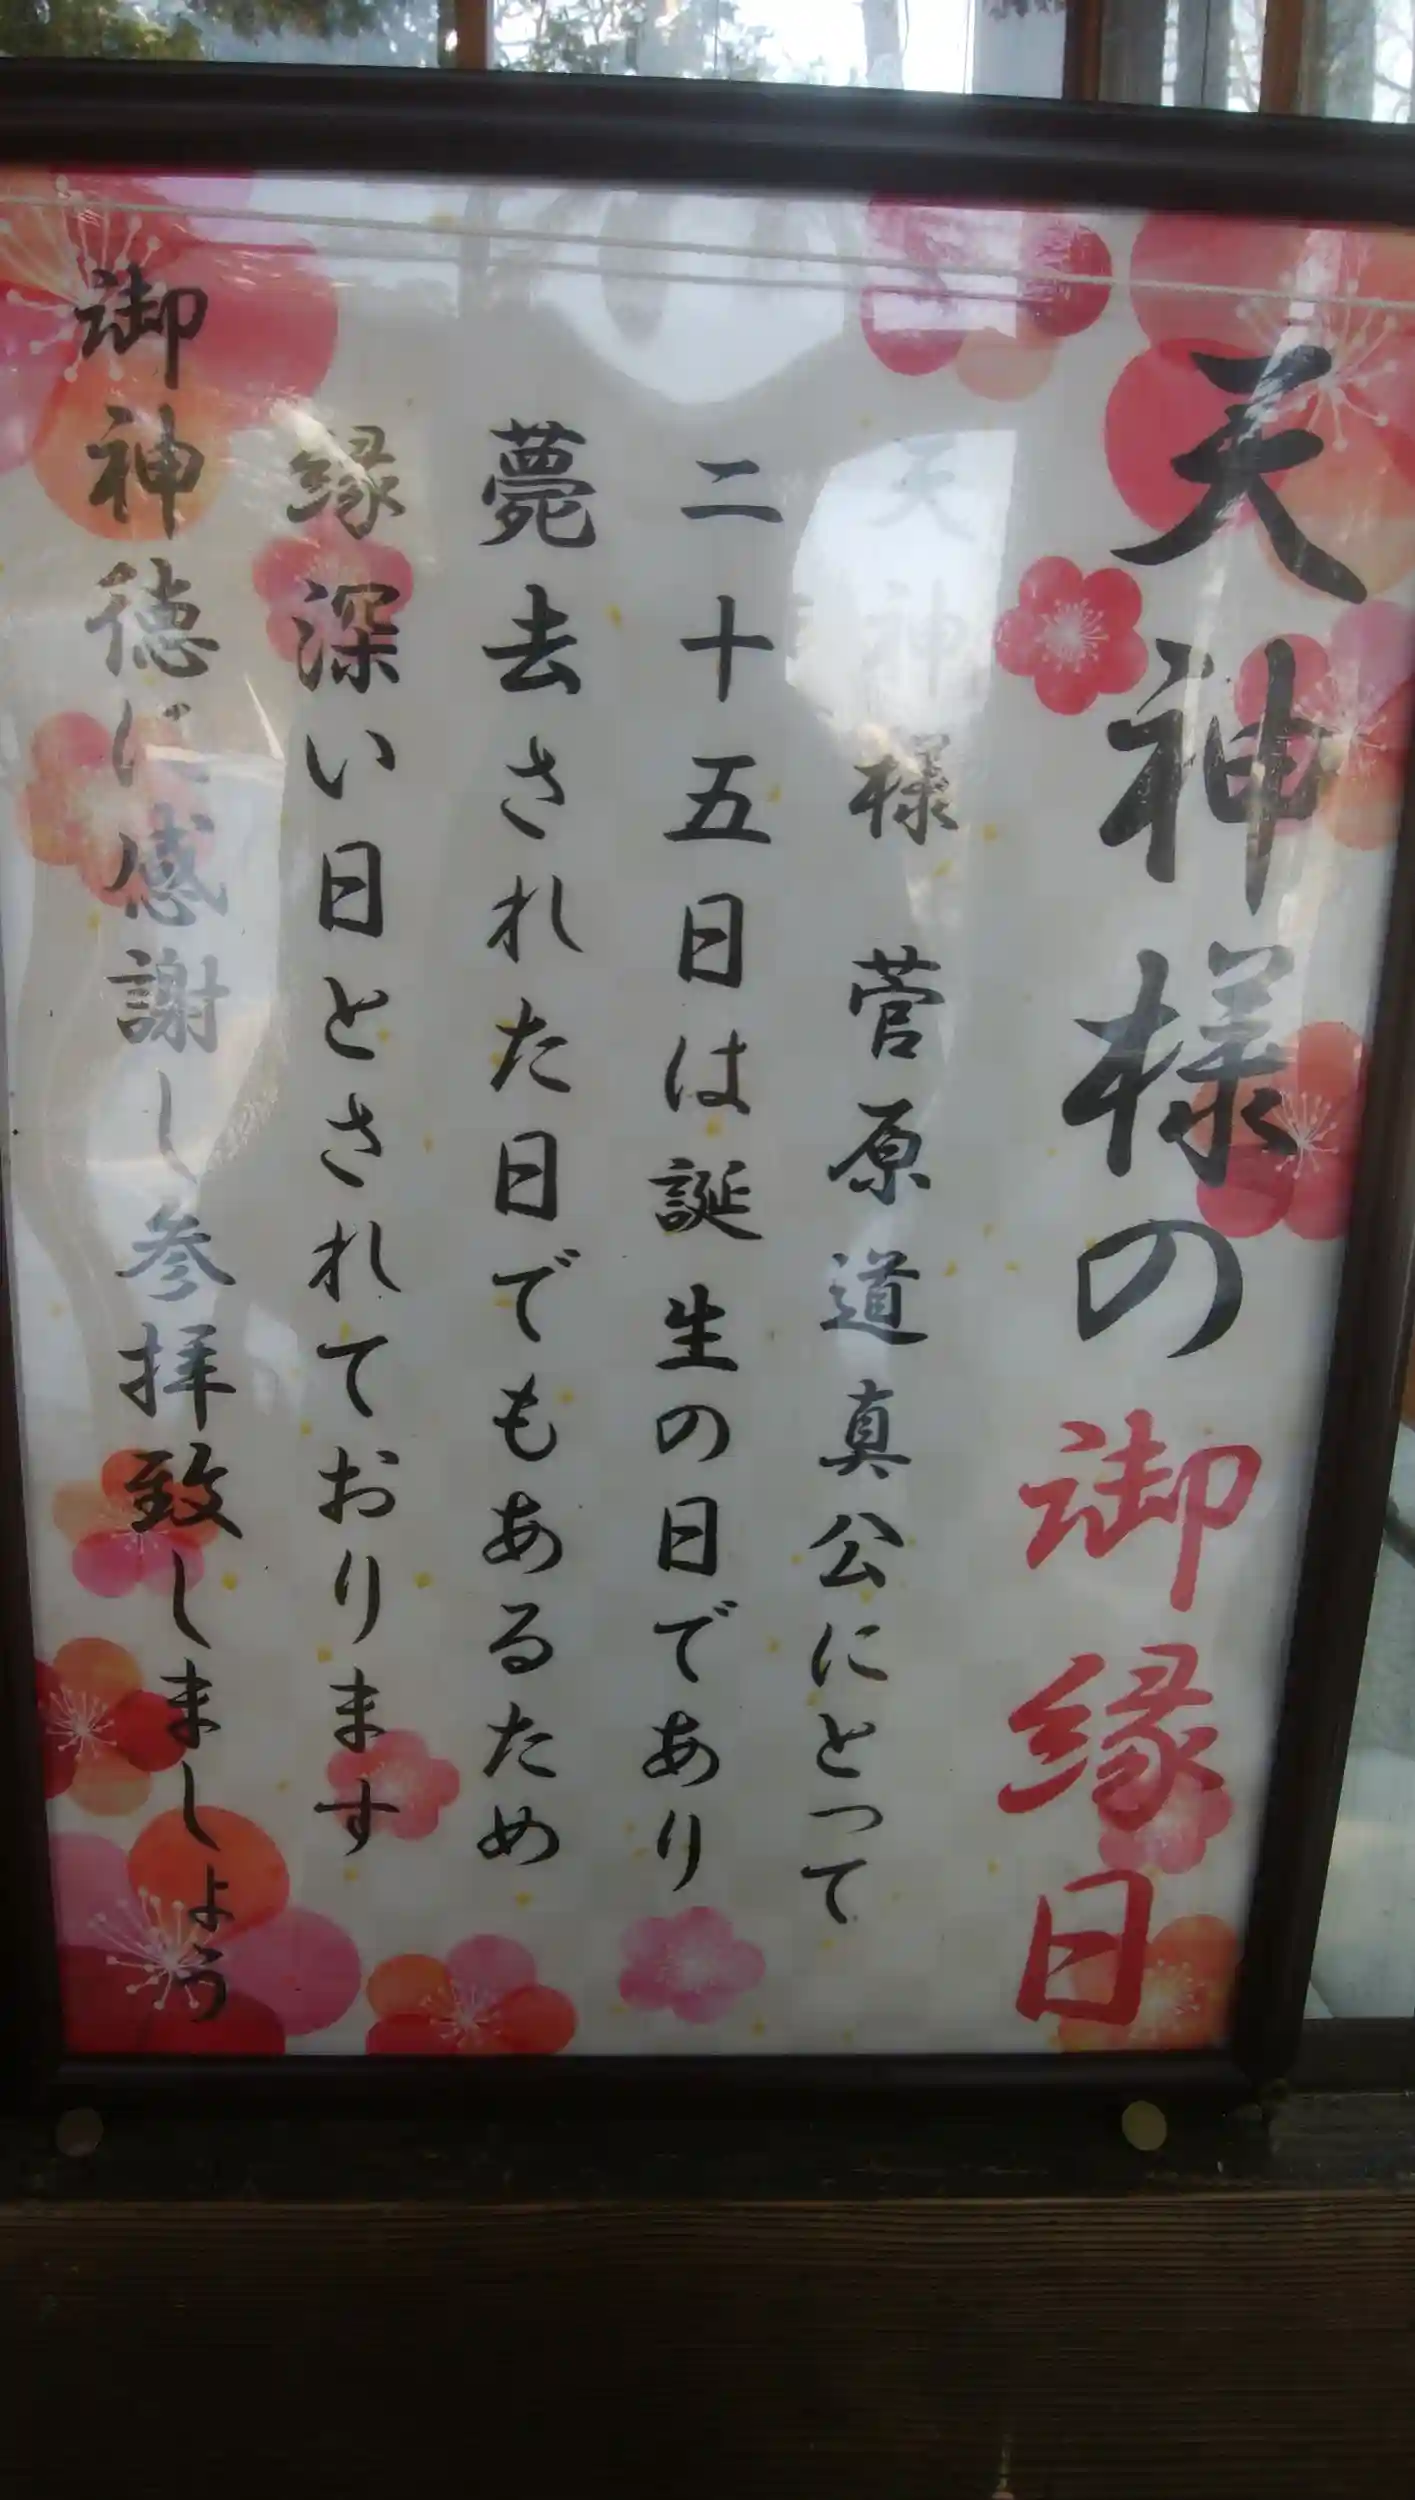 天神様の御縁日
天神様 菅原道真公にとって
二十五日は誕生の日であり
薨去された日でもあるため
縁深い日とされております
御神徳に感謝し参拝致しましょう